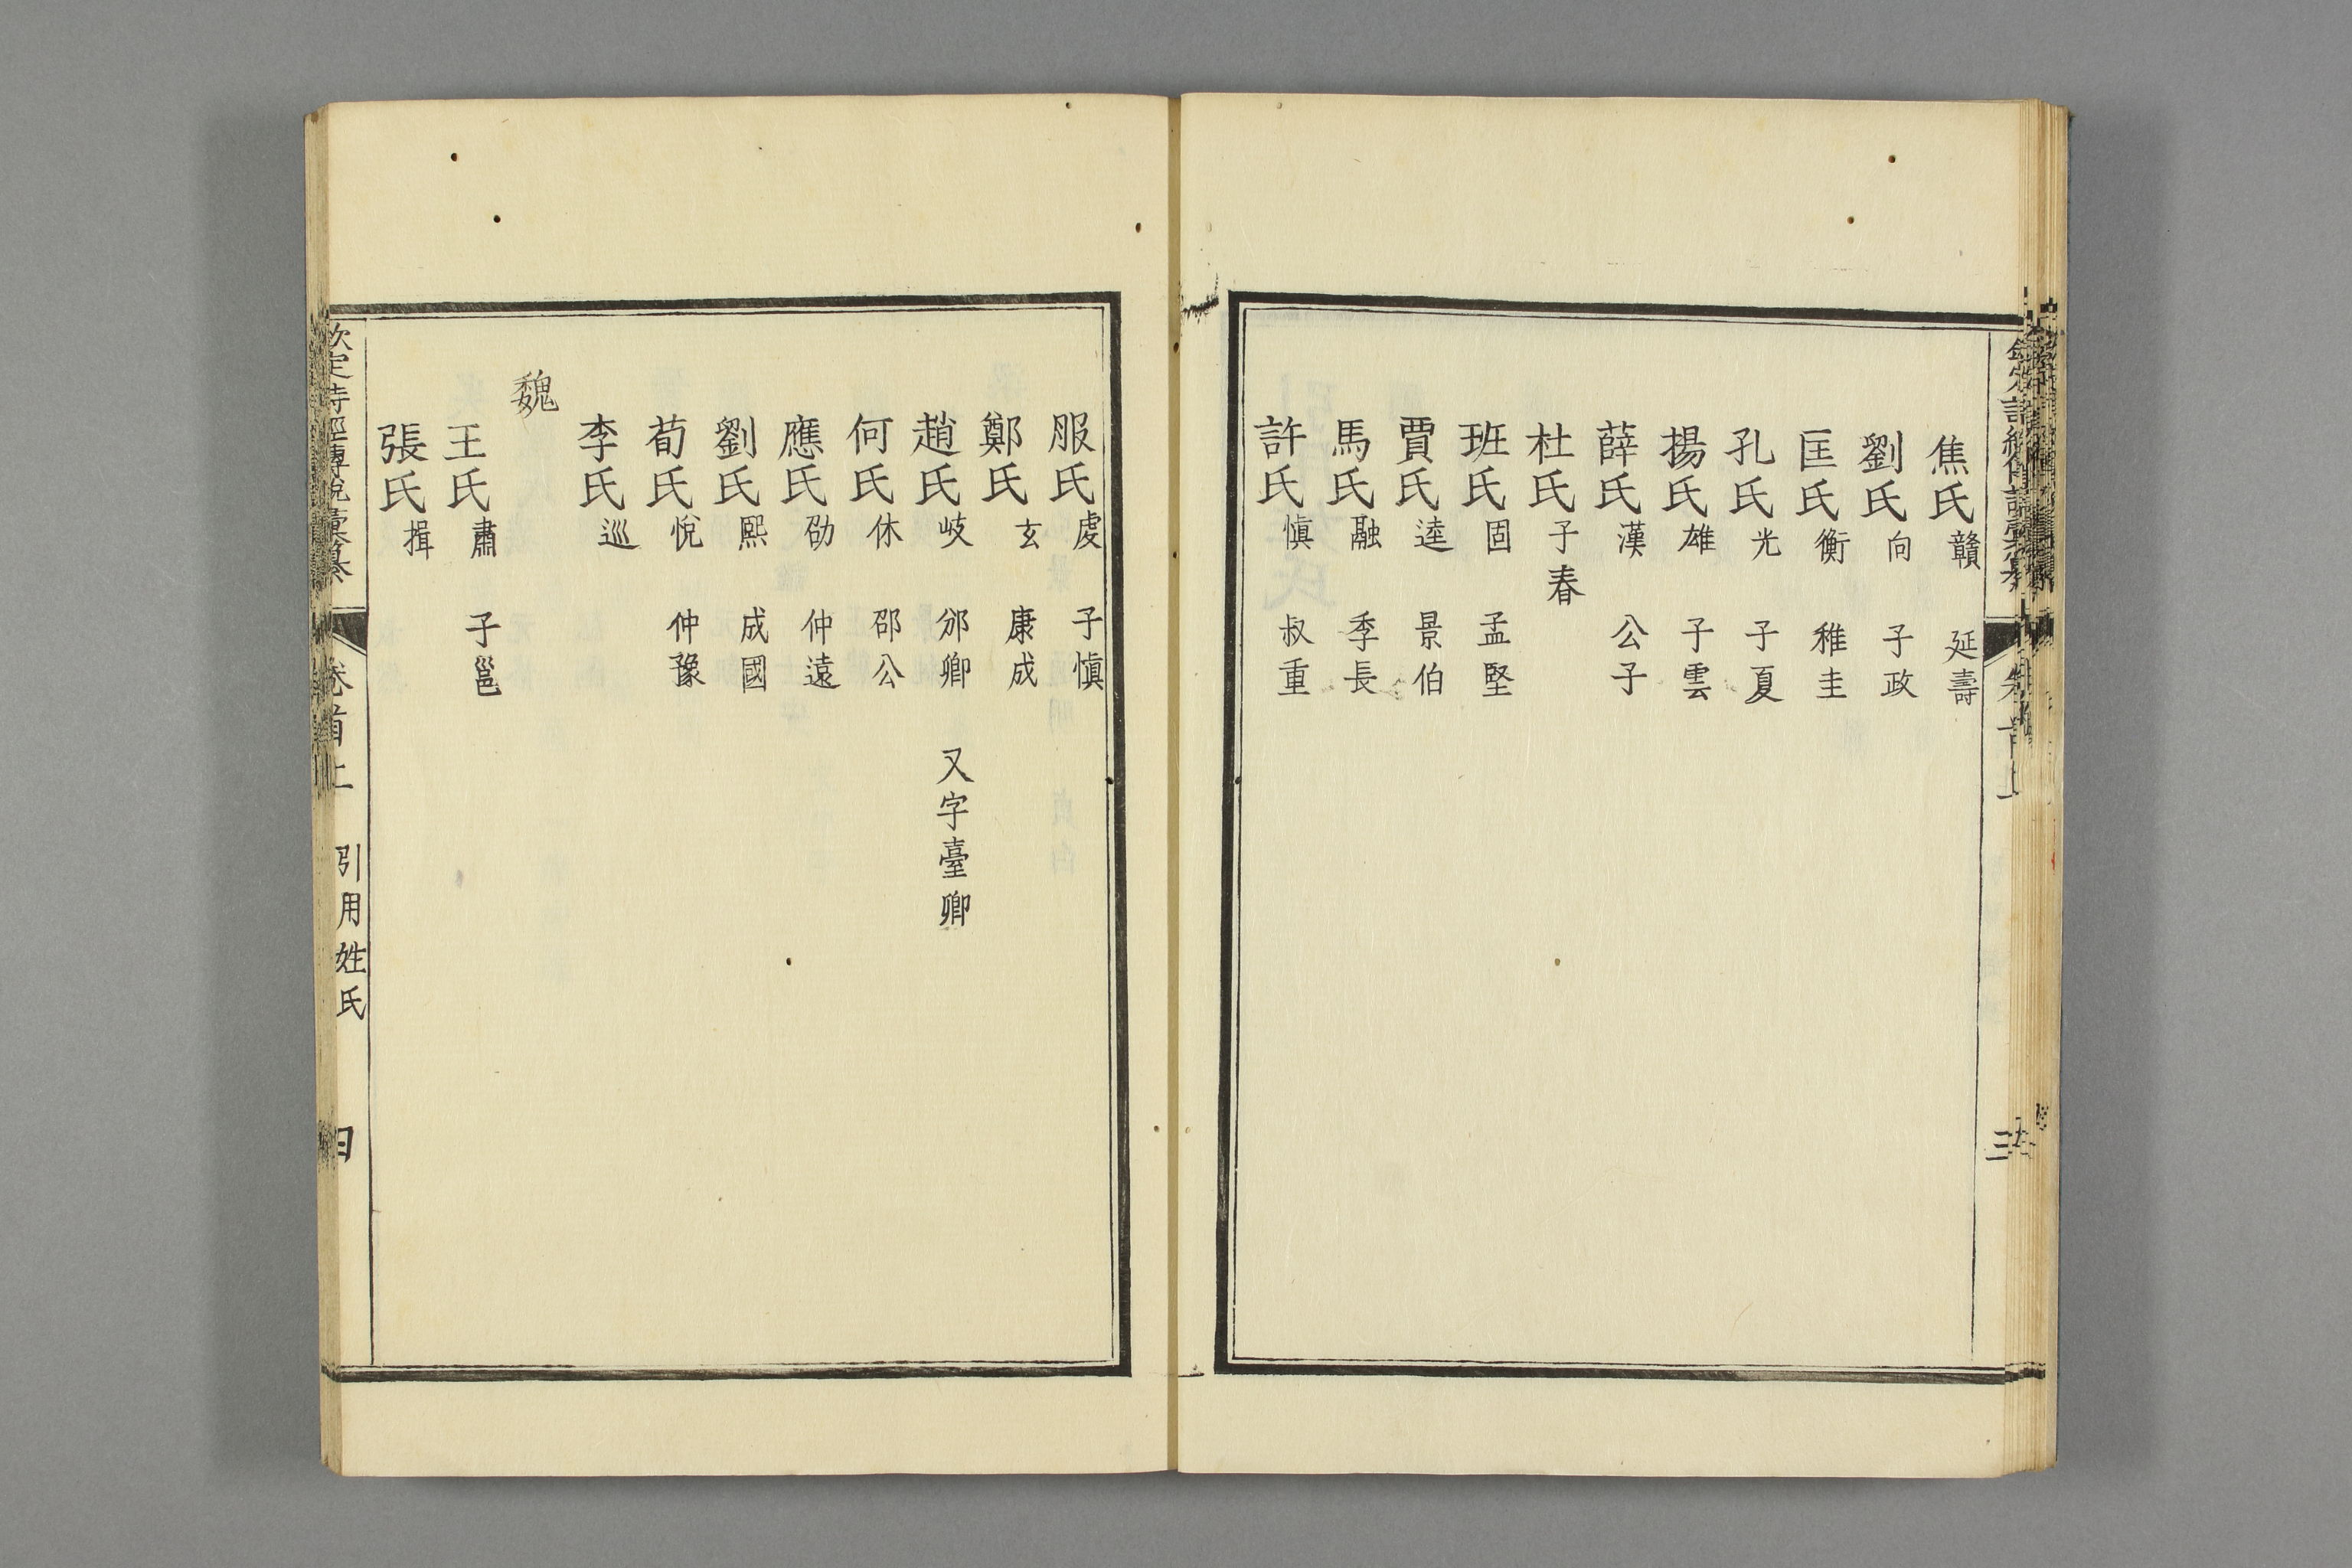 焦氏贛 延壽
劉氏向 子政
匡氏衡 稚圭
孔氏光 子夏
揚氏雄 子雲
薛氏漢 公子
杜氏子春
班氏固 孟堅
賈氏逵 景伯
馬氏融 季長
許氏慎 叔重
服氏虔 子慎
鄭氏玄 康成
趙氏岐 邠卿 又字臺卿
何氏休 邵公
應氏劭 仲遠
劉氏熙 成國
荀氏悅 仲豫
李氏巡
魏
王氏肅 子邕
張氏揖
欽定詩經傳說彙纂 卷首上 引用姓氏